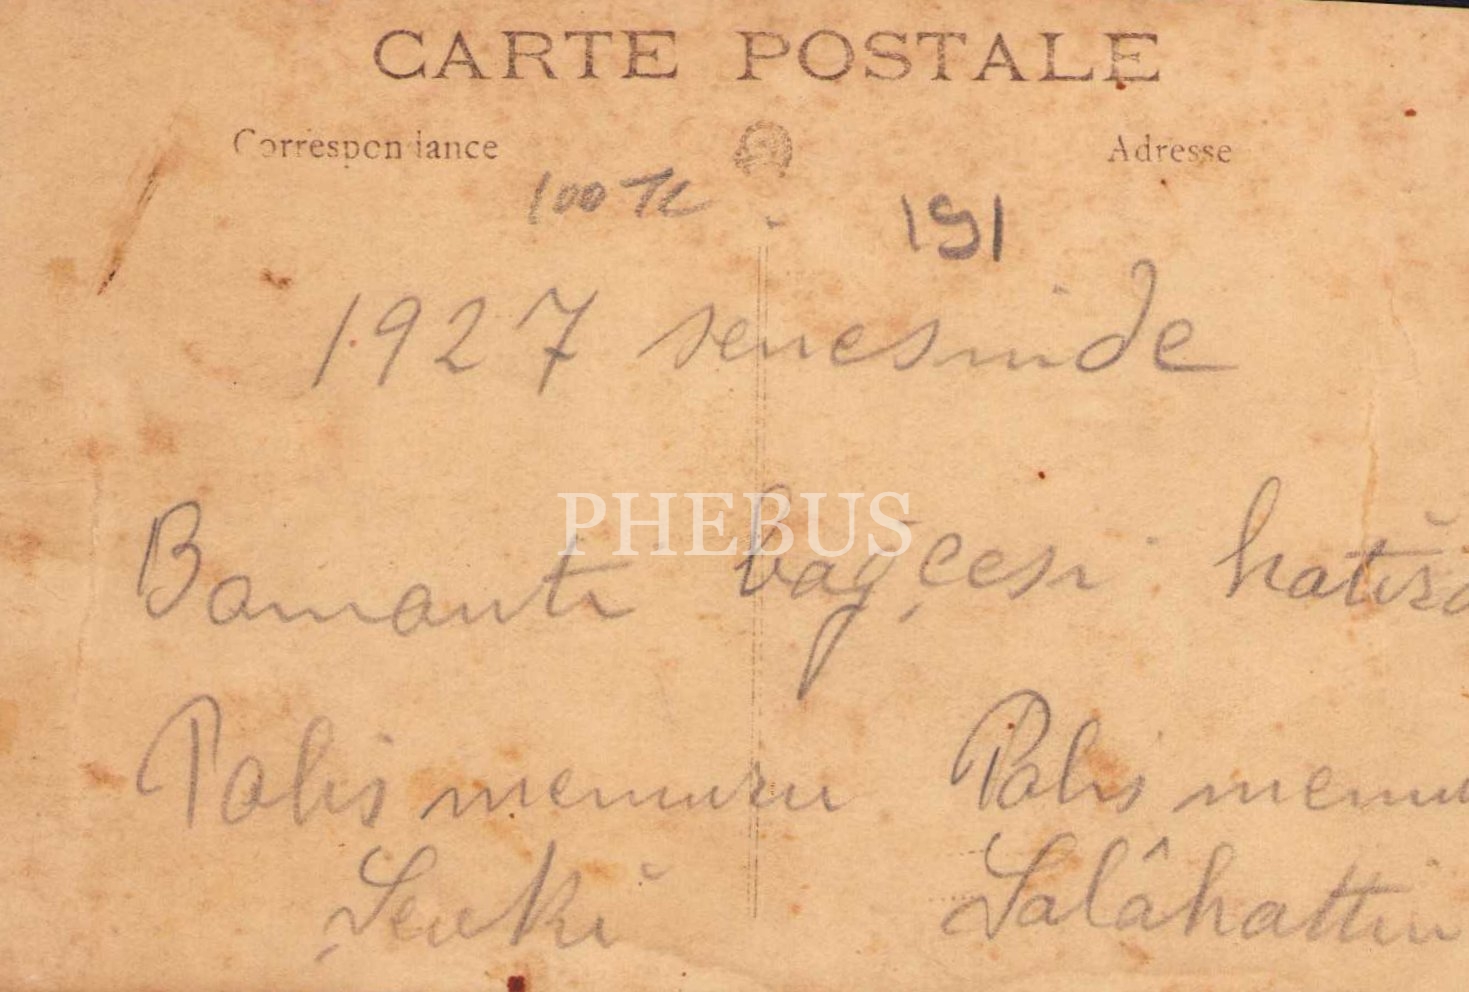 CARTE POSTALE
Correspondance Adresse
100 TL 191
1927 senesinde
Bomonti bağçesi hatıra
PHEBUS
Polis memuru Polis memu
Şevki Salâhattin